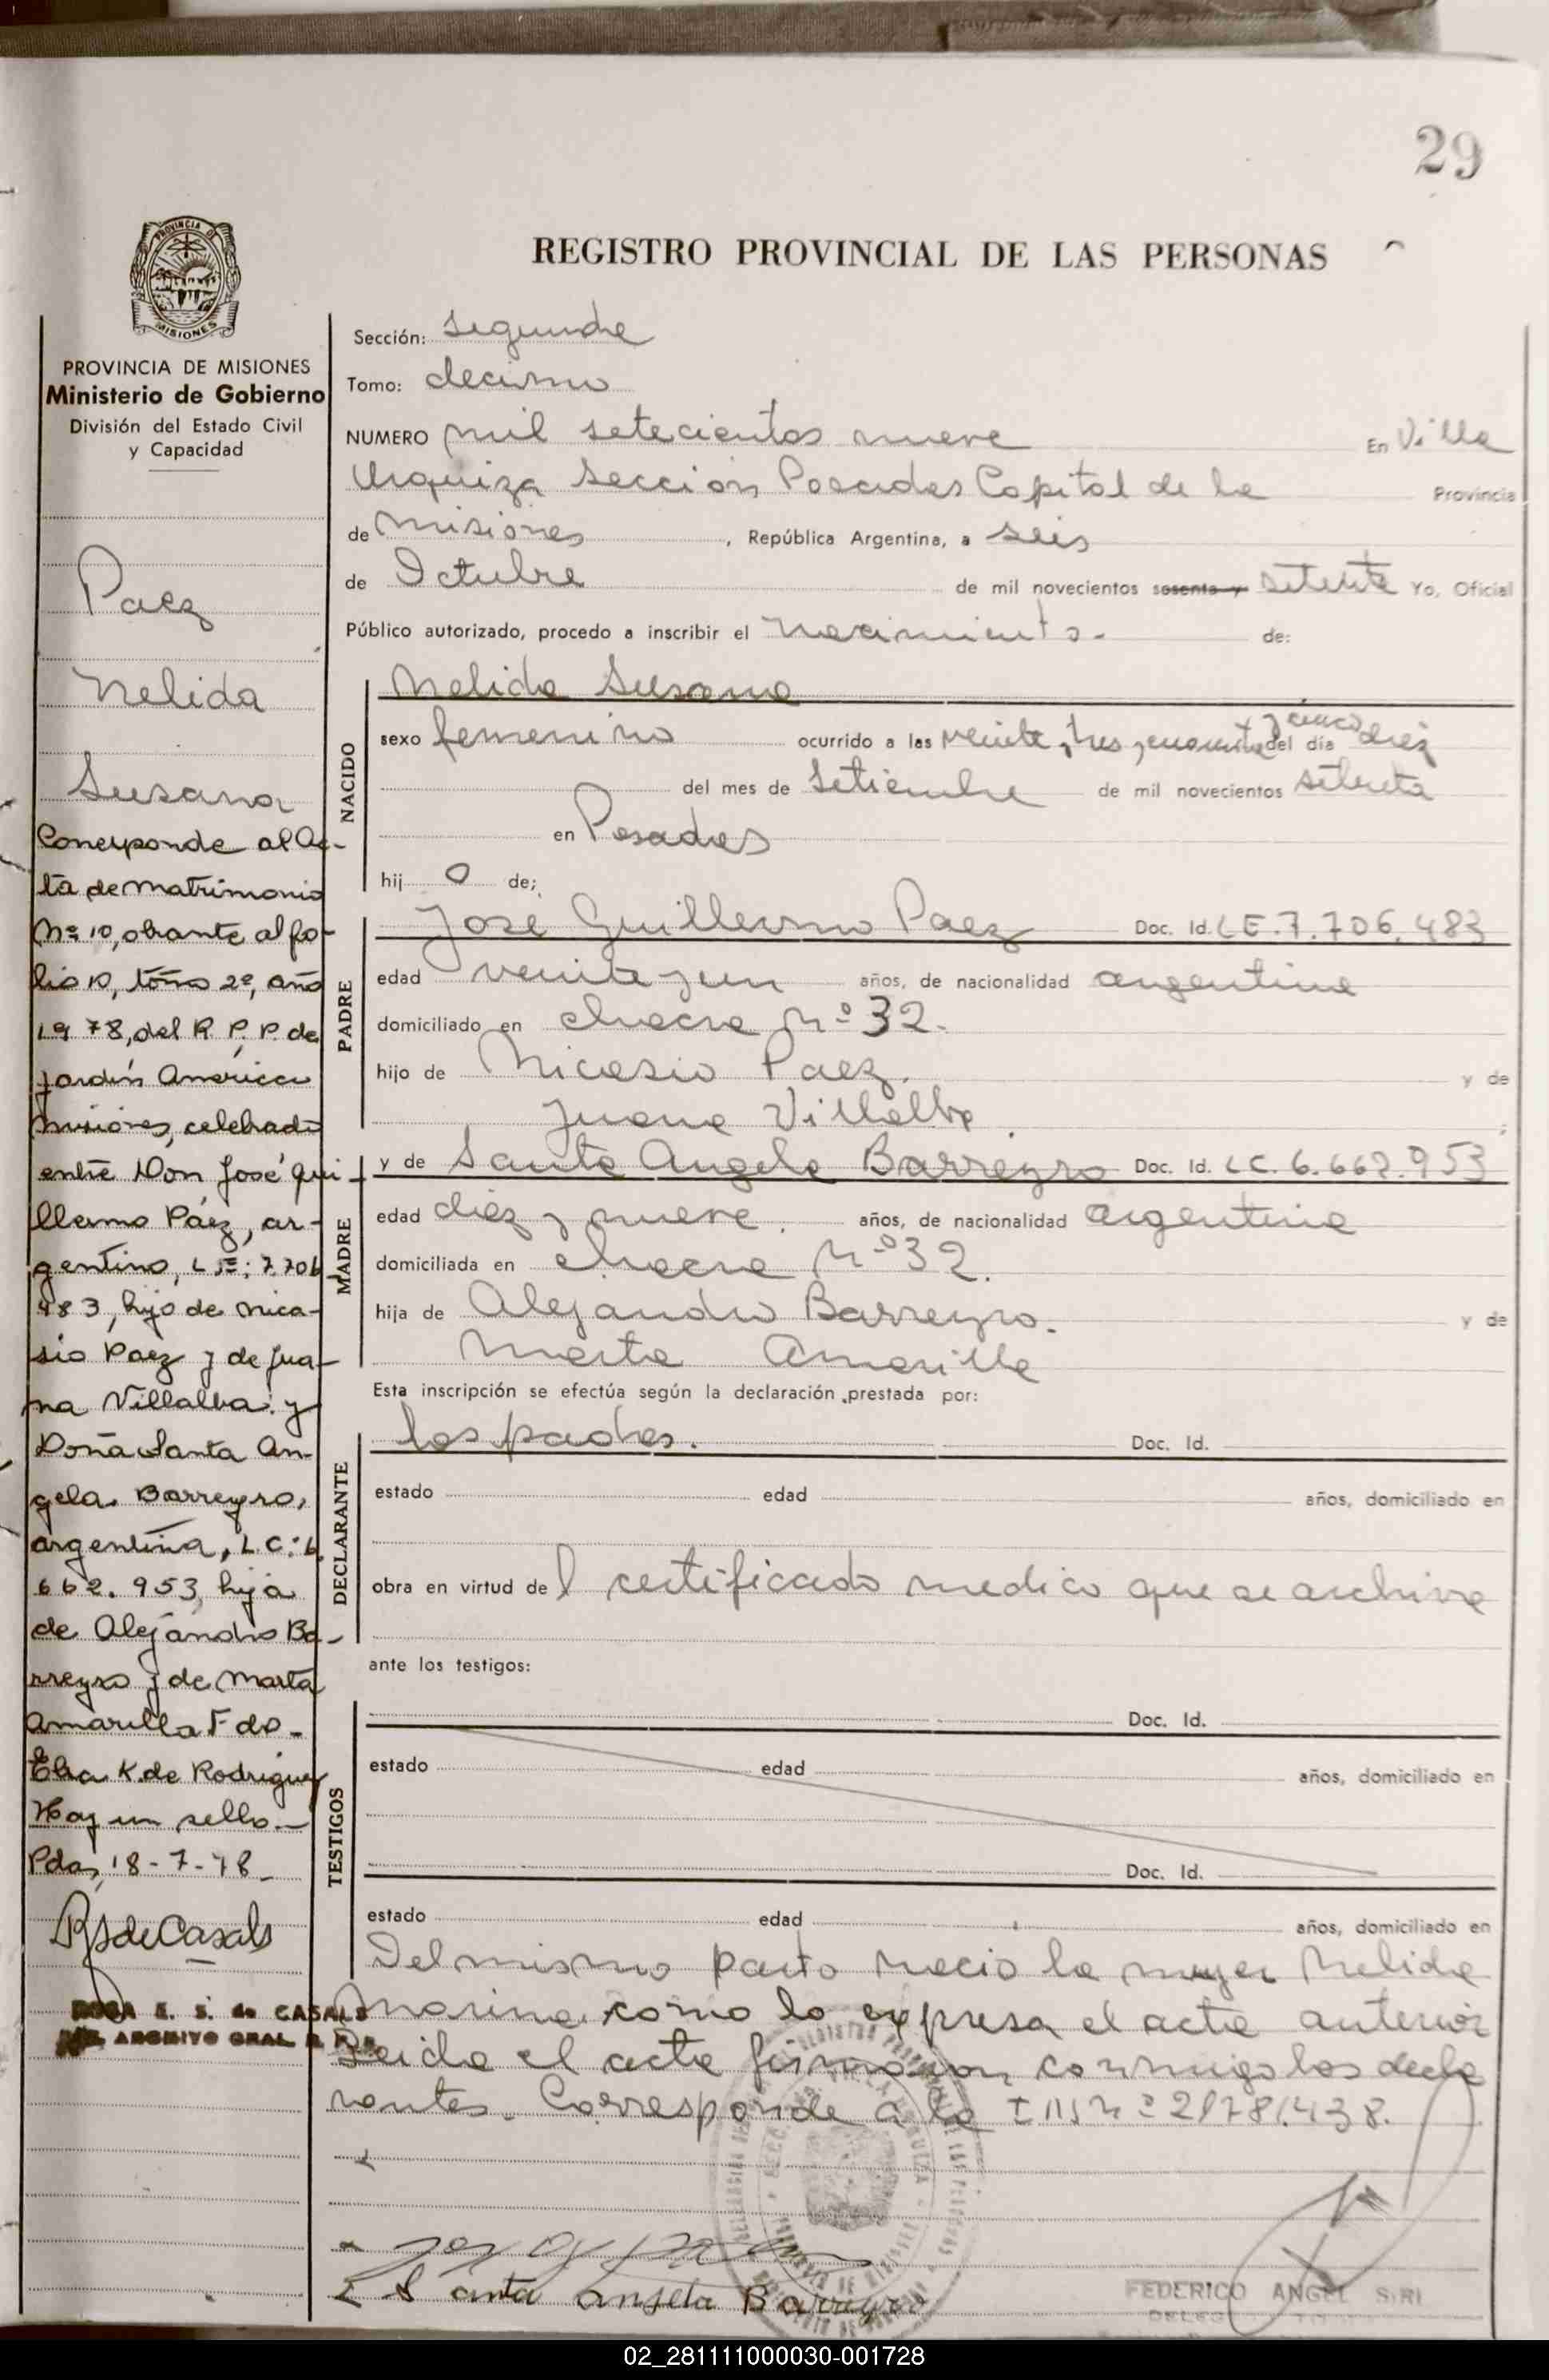 29
REGISTRO PROVINCIAL DE LAS PERSONAS
PROVINCIA DE MISIONES
PROVINCIA DE MISIONES
Ministerio de Gobierno
División del Estado Civil
y Capacidad
Paez
Nelida
Susana
Corresponde al Ac-
ta de matrimonio
Nº 10, obrante al fo-
lio 10, tomo 2º, año
1978, del R. P. P. de
Jardín America
Misiones, celebrado
entre Don José Gui-
llermo Páez, ar-
gentino, L.E: 7.706
483, hijo de Nica-
sio Paez y de Jua-
na Villalba y
Doña Santa An-
gela Barreyro,
argentina, L.C: 6.
662.953, hija
de Alejandro Ba-
rreyro y de Marta
Amarilla Fdo.
Elsa K. de Rodriguez
Hay un sello.-
Pdas, 18-7-78_
RSdeCasals
ROSA E. S. de CASALS
ARCHIVO GRAL R. P. P.
Sección: segunda
Tomo: decimo
NUMERO mil setecientos nueve En Villa
Urquiza Sección Posadas Capital de la Provincia
de Misiones, República Argentina, a seis
de Octubre de mil novecientos sesenta y setenta Yo, Oficial
Público autorizado, procedo a inscribir el nacimiento.- de:
NACIDO
Nelida Susana
sexo femenino ocurrido a las veinte y tres y cuarenta y cinco del día diez
del mes de Setiembre de mil novecientos setenta
en Posadas
hij a de;
PADRE
José Guillermo Paez Doc. Id. LE.7.706.483
edad veinte y un años, de nacionalidad argentina
domiciliado en chacra Nº 32.
hijo de Nicasio Paez. y de
Juana Villalba.
MADRE
y de Santa Angela Barreyro Doc. Id. LC.6.662.953
edad diez y nueve. años, de nacionalidad argentina
domiciliada en chacra Nº 32.
hija de Alejandro Barreyro. y de
Marta Amarilla
Esta inscripción se efectúa según la declaración prestada por:
DECLARANTE
los padres. Doc. Id.
estado edad años, domiciliado en
obra en virtud del certificado medico que se archiva
ante los testigos:
TESTIGOS
Doc. Id.
estado edad años, domiciliado en
Doc. Id.
estado edad años, domiciliado en
Del mismo parto nacio la mujer Nelida
Marina como lo expresa el acta anterior
Leida el acta firmaron conmigo los decla
rantes. Corresponde a la Nº 21781438.
Santa Angela Barreyro
FEDERICO ANGEL SIRI
02_281111000030-001728